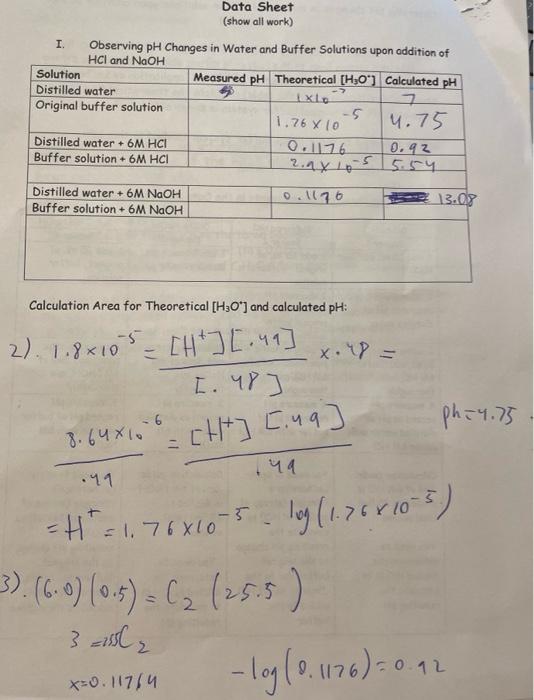 Data Sheet
(show all work)
I. Observing pH Changes in Water and Buffer Solutions upon addition of
HCl and NaOH
Solution Measured pH Theoretical [H₃O⁺] Calculated pH
Distilled water 1x10⁻⁷ 7
Original buffer solution 1.76 x 10⁻⁵ 4.75
Distilled water + 6M HCl 0.1176 0.92
Buffer solution + 6M HCl 2.9x10⁻⁵ 5.54
Distilled water + 6M NaOH 0.1176 13.08
Buffer solution + 6M NaOH
Calculation Area for Theoretical [H₃O⁺] and calculated pH:
2). 1.8x10⁻⁵ = [H⁺][.49] x.48 =
[.48]
8.64x10⁻⁶ = [H⁺] [.49] ph=4.75
.49 .49
=H⁺=1.76x10⁻⁵ - log(1.76x10⁻⁵)
3). (6.0)(0.5)=C₂(25.5)
C₂
x=0.11764 -log(0.1176)=0.92